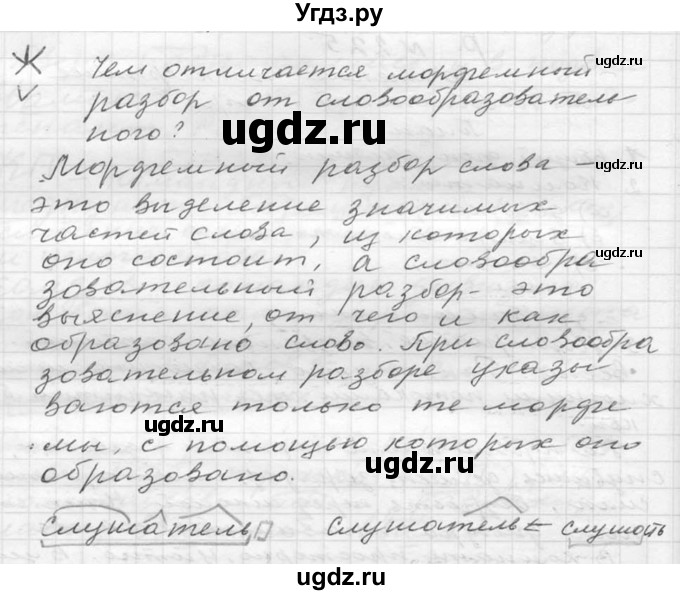 Угдз.ру
Чем отличается морфемный
разбор от словообразователь
ного?
Морфемный разбор слова –
это выделение значимых
частей слова, из которых
оно состоит, а словообра
зовательный разбор - это
выяснение, от чего и как
образовано слово. При словообра
зовательном разборе указы
ваются только те морфе
мы, с помощью которых оно
образовано.
слушатель слушатель ← слушать
ugdz.ru
ugdz.ru
ugdz.ru
ugdz.ru
ugdz.ru
ugdz.ru
ugdz.ru
ugdz.ru